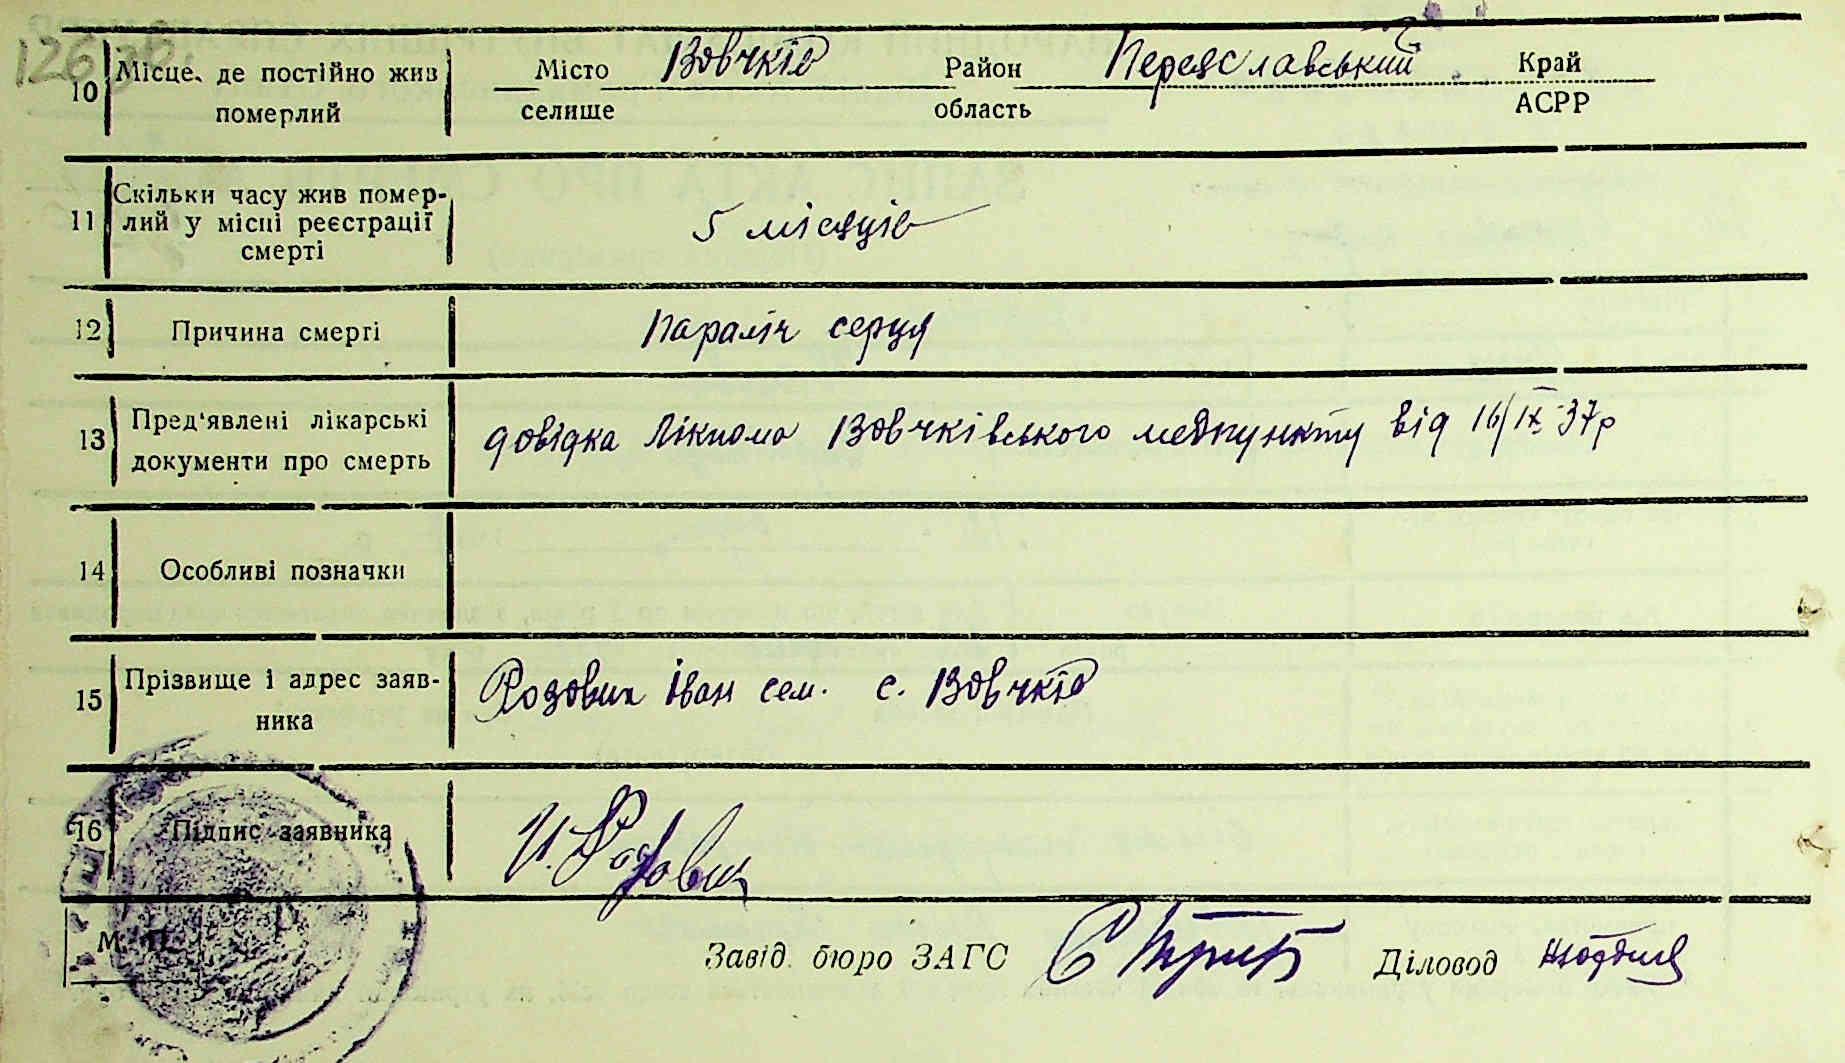 126 зв.
10 Місце, де постійно жив померлий
Місто Вовчків Район Переяславський Край
селище область АСРР
11 Скільки часу жив помер-
лий у місці реєстрації
смерті
5 місяців
12 Причина смерті Параліч серця
13 Пред'явлені лікарські
документи про смерть
довідка Лікпома Вовчківського медпункту від 16/IX-37р
14 Особливі позначки
15 Прізвище і адрес заяв-
ника
Розовик Іван сем. с. Вовчків
16 Підпис заявника И. Розовик
М. П.
Завід. бюро ЗАГС Діловод